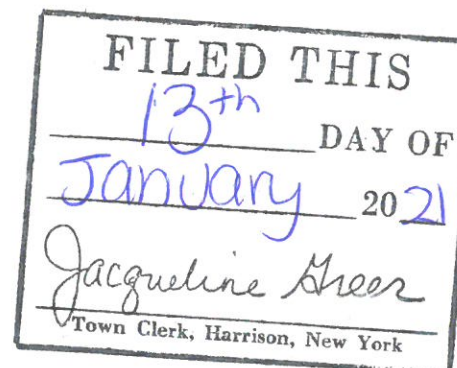 FILED THIS
13th DAY OF
January 2021
Jacqueline Greer
Town Clerk, Harrison, New York